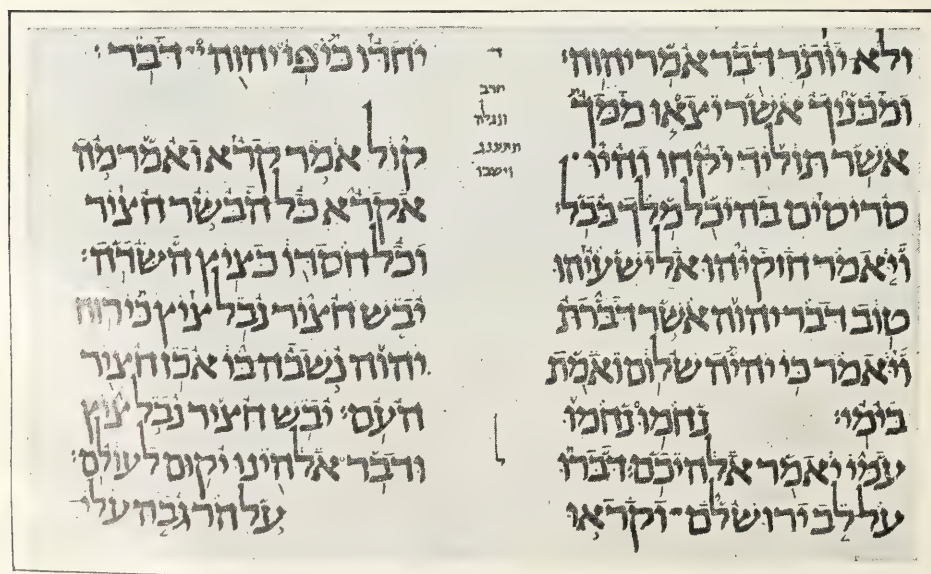 ולא יותר דבר אמר יהוה׃
ומבניך אשר יצאו ממך
אשר תוליד יקחו והיו
סריסים בהיכל מלך בבל׃
ויאמר חזקיהו אל ישעיהו
טוב דבר יהוה אשר דברת
ויאמר כי יהיה שלום ואמת
בימי׃ נחמו נחמו
עמי יאמר אלהיכם׃ דברו
על לב ירושלם וקראו
חרב
ונגלה
תתענג
וישבו
יחדו כי פי יהוה דבר׃
קול אמר קרא ואמר מה
אקרא כל הבשר חציר
וכל חסדו כציץ השדה׃
יבש חציר נבל ציץ כי רוח
יהוה נשבה בו אכן חציר
העם׃ יבש חציר נבל ציץ
ודבר אלהינו יקום לעולם׃
על הר גבה עלי